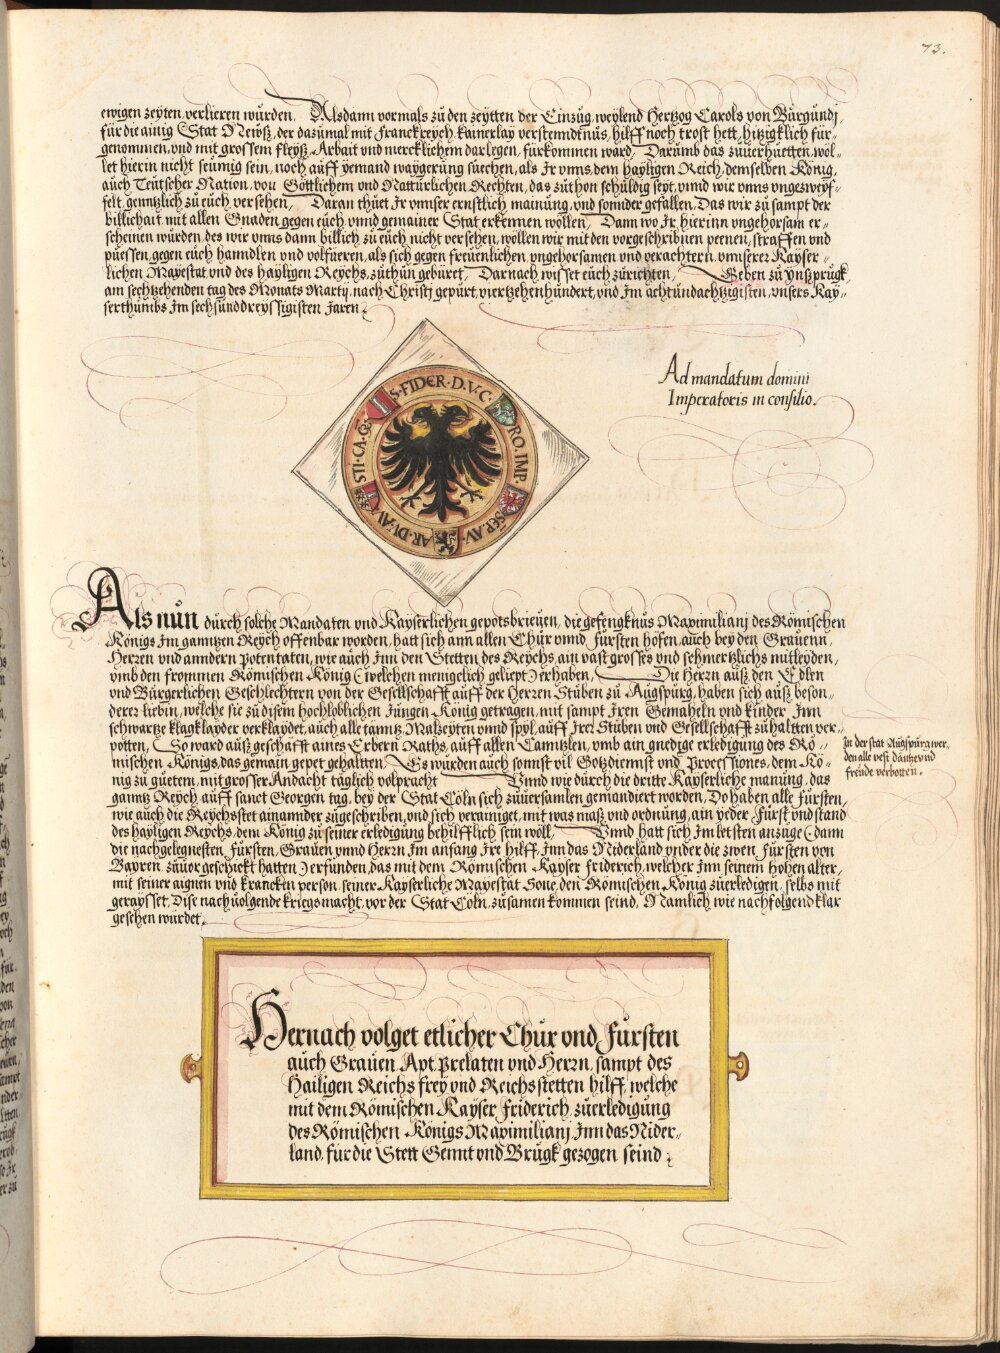 73.
ewigen zeyten verlieren wurden. Alsdann vormals zu den zeytten der Einzug, weylend Hertzog Carols von Burgundj,
für die ainig Stat Neüß, der dazumal mit Franckreych kainerlay verstenndtnüs, hilff noch trost hett, hitzigklich für-
genommen, und mit grossem fleyß, Arbait und mercklichem darlegen, fürkommen ward, Darumb das zuuerhuetten, wöl-
let hierin nicht seümig sein, noch auff yemand waygerung suechen, als Ir vnns, dem hayligen Reich, demselben König,
auch Teutscher Nation, von Göttlichem und Natturlichen Rechten, das zuthon schuldig seyt, vnnd wir vnns vngezweyf-
felt, genntzlich zu euch versehen, Daran thuet Ir vnnser ernstlich mainung, vnd sonnder gefallen, Das wir zu sampt der
billichait, mit allen Gnaden gegen euch vnnd gemainer Stat erkennen wöllen, Dann wo Ir hierinn vngehorsam er-
scheinen würden, des wir vnns dann billich zu euch nicht versehen, wöllen wir mit den vorgeschribnen peenen, straffen und
puessen, gegen euch hanndlen und volfueren, als sich gegen freuenlichen vngehorsamen und verachtern vnnserer Kayser-
lichen Mayestat und des hayligen Reychs, zuthun gebüret, Darnach wisset euch zurichten, Geben zu Ynßprugk,
am sechtzehenden tag des Monats Martij, nach Christj gepurt, viertzehenhundert, und Im achtundachtzigisten, vnsers Kay-
serthumbs Im sechsunddreyssigisten Jaren.
Ad mandatum domini
Imperatoris in consilio.
S. FIDER. D. V. C. RO. IMP. SEP. AV. AR. DV. AV STI. CA. C.
Als nun durch solche Mandaten und Kayserlichen gepotsbrieuen, die gefengknüs Maximilianj des Römischen
Königs Im ganntzen Reych offenbar worden, hatt sich ann allen Chur vnnd Fürsten höfen, auch bey den Grauenn,
Herren und anndern potentaten, wie auch Inn den Stetten des Reychs, ain vast grosses und schmertzlichs mitleyden,
vmb den frommen Römischen König (welchen menigclich geliept) erhaben, Die Herrn auß den Edlen
und Burgerlichen Geschlechtern von der Gesellschafft auff der Herren Stuben zu Augspurg, haben sich auß beson-
derer liebin, welche sie zu disem hochloblichen Jungen König getragen, mit sampt Iren Gemaheln und kinder Inn
schwartze klagklayder verklaydet, auch alle tanntz, Malzeyten vnnd spyl, auff Irer Stuben und Gesellschafft zuhaltten ver-
potten, So ward auß geschäfft aines Erbern Raths, auff allen Canntzlen, vmb ain gnedige erledigung des Rö-
mischen Königs, das gemain gepet gehaltten, Es wurden auch sonnst vil Gotzdiennst und Processiones, dem Kö-
nig zu guetem, mit grosser Andacht täglich volpracht Vnnd wie durch die dritte Kayserliche manung, das
ganntz Reych auff sanct Georgen tag, bey der Stat Cöln sich zuuersamlen gemandiert worden, Do haben alle Fürsten,
wie auch die Reychsstet ainannder zugeschriben, und sich verainiget, mit was maß und ordnung, ain yeder Fürst und stand
des hayligen Reychs, dem König zu seiner erledigung behilfflich sein wöll, Vnnd hatt sich Im letsten anzuge (dann
die nachgelegnesten Fürsten, Grauen vnnd Herrn Im anfang Ire hilff Inn das Niderland vnder die zwen Fürsten von
Bayren zuuor geschickt hatten) erfunden, das mit dem Römischen Kayser Friderich, welcher Inn seinem hohen alter,
mit seiner aignen und krancken person seiner Kayserliche Mayestat Sone, den Römischen König zuerledigen, selbs mit
geraysset, Dise nachuolgende kriegsmacht, vor der Stat Cöln, zusamen kommen seind, Namlich wie nachfolgend klar
gesehen wurdet.
In der stat Augspurg wer-
den alle vest däntze und
freude verbotten.
Hernach volget etlicher Chur und Fürsten
auch Grauen Apt Prelaten und Herrn, sampt des
Hailigen Reichs frey und Reichsstetten hilff, welche
mit dem Römischen Kayser Friderich zuerledigung
des Römischen Königs Maximilianj Inn das Nider-
land, für die Stett Gennt und Brugk gezogen seind.